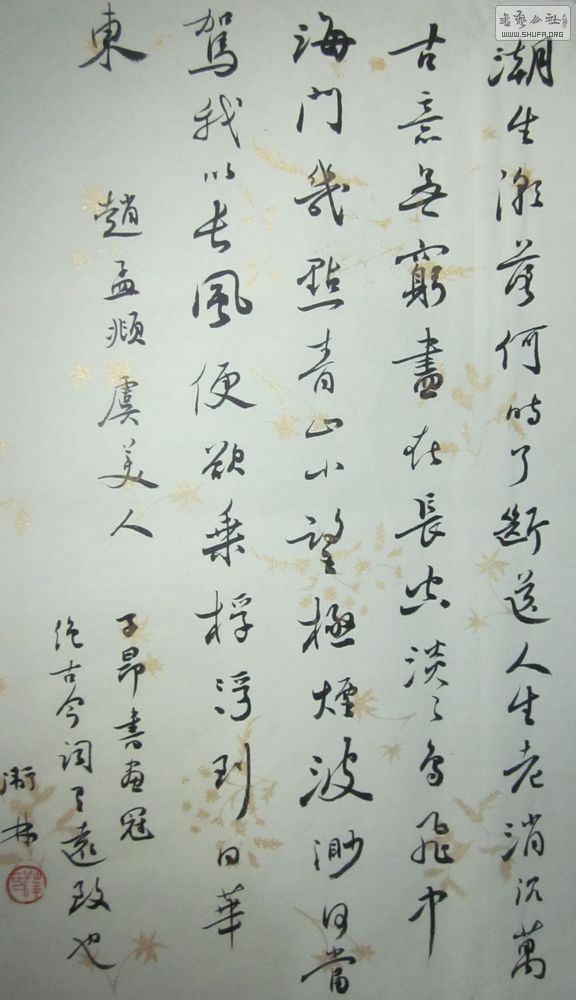 書藝公社
WWW.SHUFA.ORG
潮生潮落何時了斷送人生老消沉萬
古意無窮盡在長空淡〻鳥飛中
海門幾點青山小望極煙波渺何當
駕我以長風便欲乘桴浮到日華
東
趙孟頫虞美人
子昂書畫冠
絕古今詞遠致也